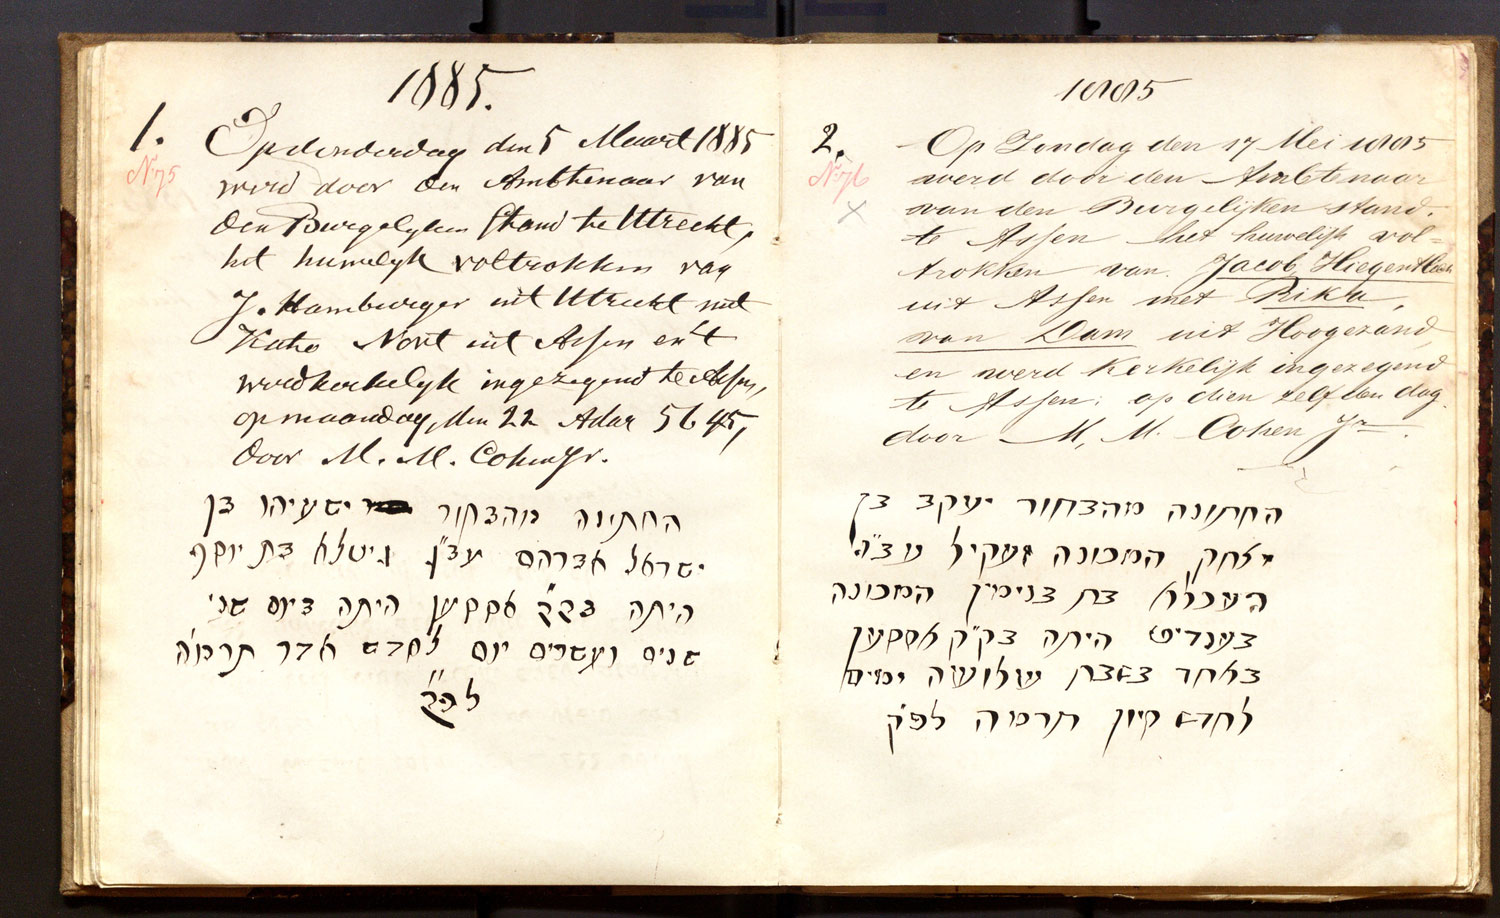 1885.
1.
N. 75
Op donderdag den 5 Maart 1885
werd door den Ambtenaar van
den Burgelyken Stand te Uttrecht,
het huwelyk voltrokken van
J. Hamburger uit Uttrecht met
Kato Nort uit Assen en 't
werd kerkelyk ingezegend te Assen,
op maandag, den 22 Adar 5645,
door M. M. Cohen Jr.
החתונה מהבחור ישעיהו בן
ישראל אברהם עב"ג גיטלא בת יוסף
היתה בקק אססען היתה ביום שני
שנים ועשרים יום לחדש אדר תרמ"ה
לפ"ק
1885
2.
N. 76
Op Zondag den 17 Mei 1885
werd door den Ambtenaar
van den Burgelijken stand.
te Assen het huwelijk vol=
trokken van Jacob
uit Assen met Rika
van Dam uit Hoogezand,
en werd Kerkelijk ingezegend
te Assen, op dien zelfden dag.
door M. M. Cohen Jr.
החתונה מהבחור יעקב בן
יצחק המכונה זעקיל עב"ג
בת בנימין המכונה
בענדיט היתה בק"ק אססען
באחד בשבת שלושה ימים
לחדש סיון תרמ"ה לפ"ק